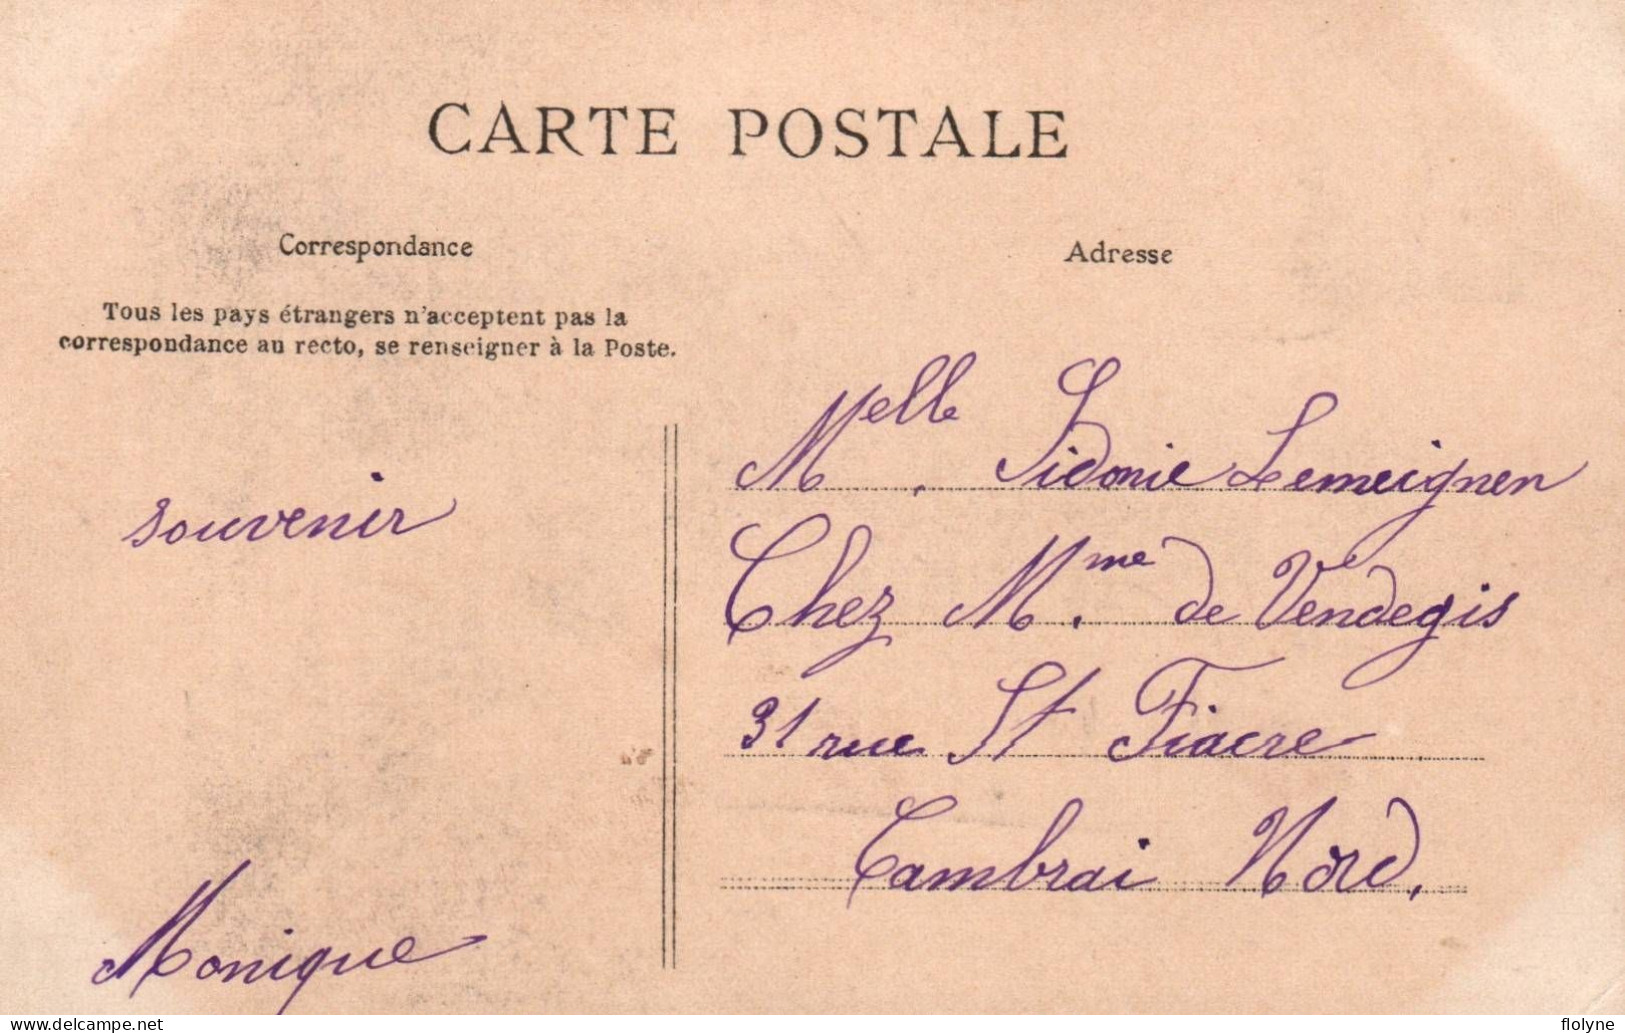 CARTE POSTALE
Correspondance
Tous les pays étrangers n'acceptent pas la
correspondance au recto, se renseigner à la Poste.
souvenir
Monique
Adresse
Melle. Sidonie Lemeignen
Chez Mme. de Vendegis
31 rue St Fiacre
Cambrai Nord.
delcampe.net
flolyne